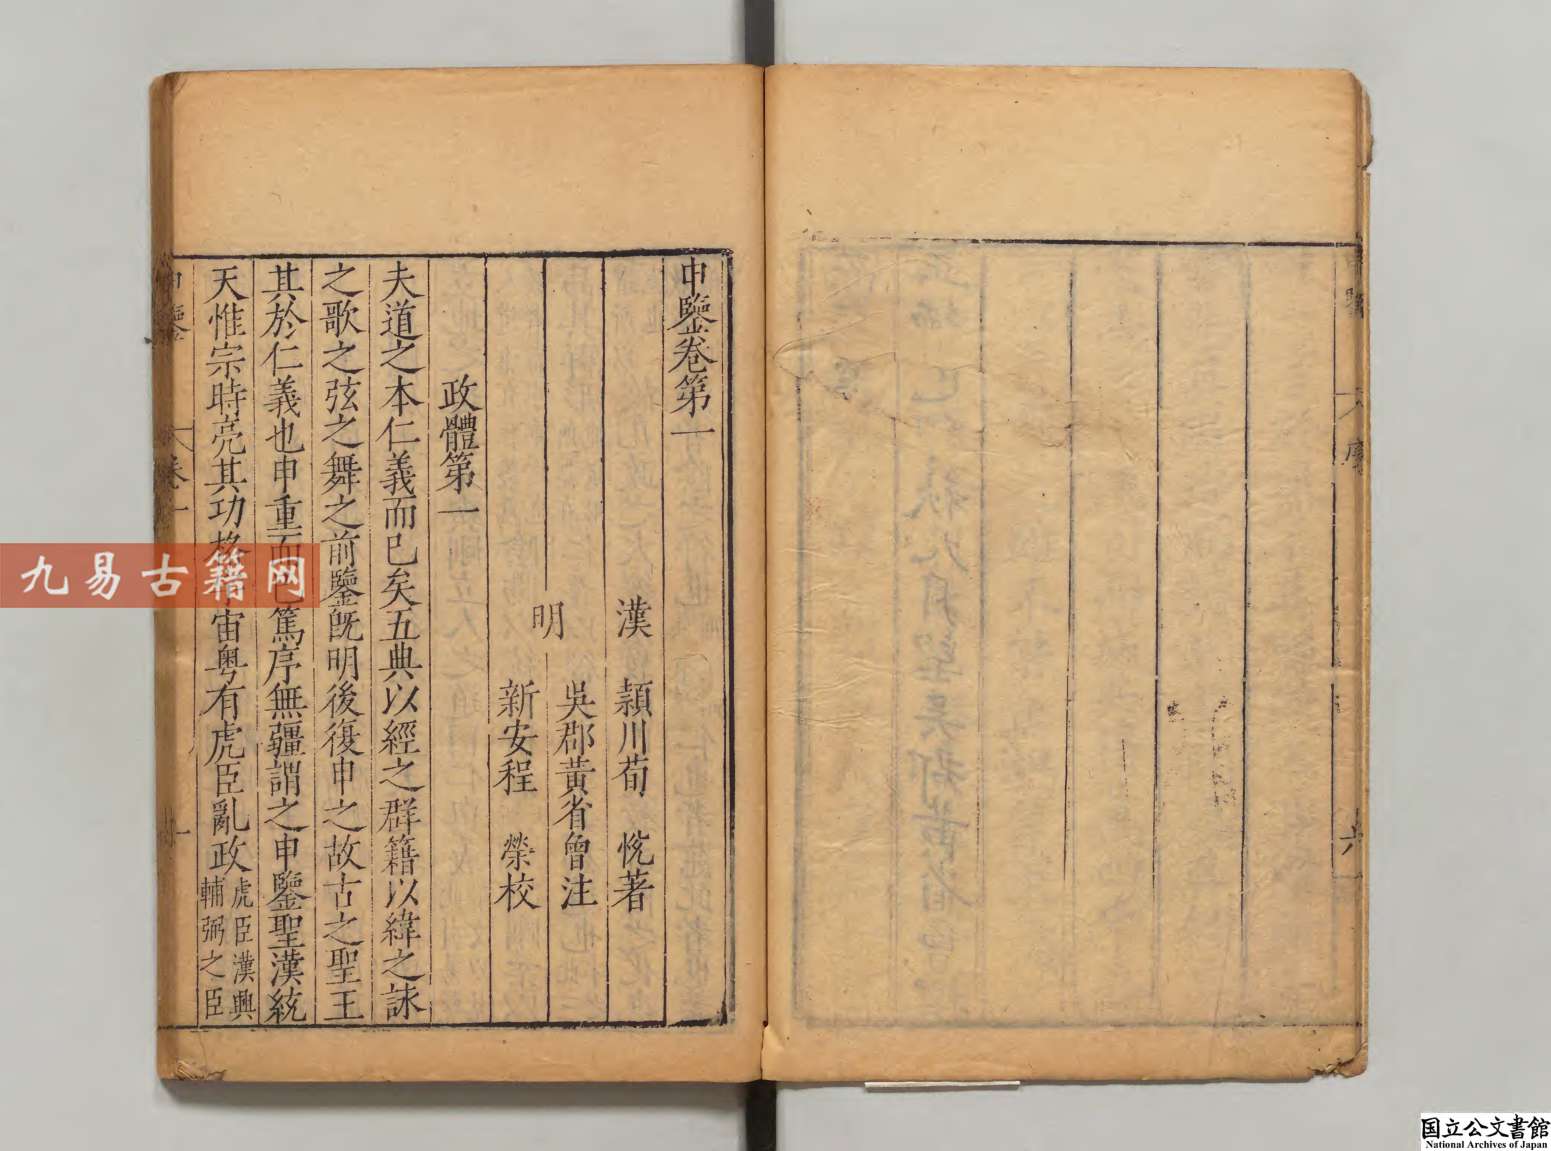 申鑒卷第一
漢 潁川荀 悅著
明 吳郡黃省曾注
新安程 榮校
政體第一
夫道之本仁義而已矣五典以經之群籍以緯之詠
之歌之弦之舞之前鑒既明後復申之故古之聖王
其於仁義也申重而已篤序無疆謂之申鑒聖漢統
天惟宗時亮其功格宇宙粵有虎臣亂政
虎臣漢興
輔弼之臣
九易古籍网
国立公文書館
National Archives of Japan